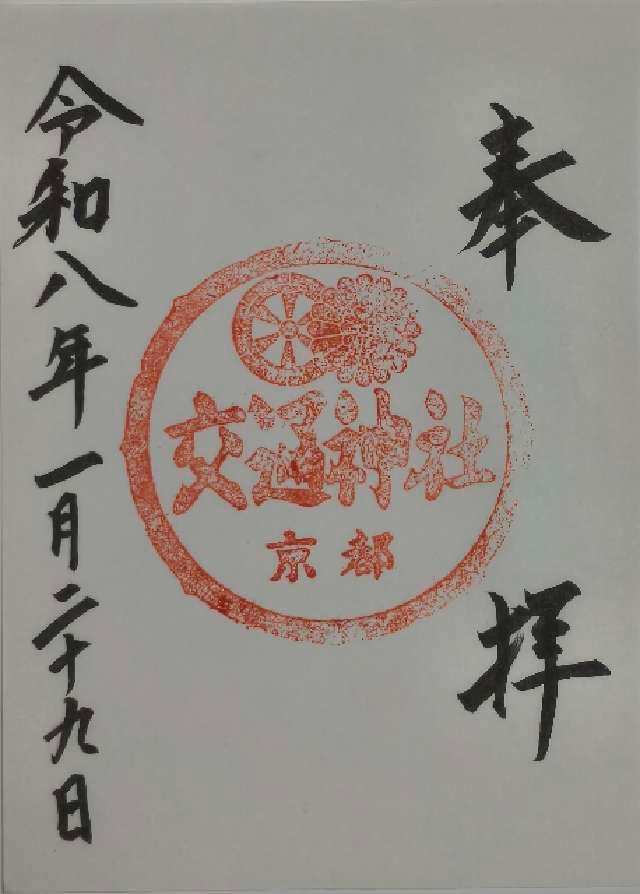 奉拝
交通神社
京都
令和八年一月二十九日